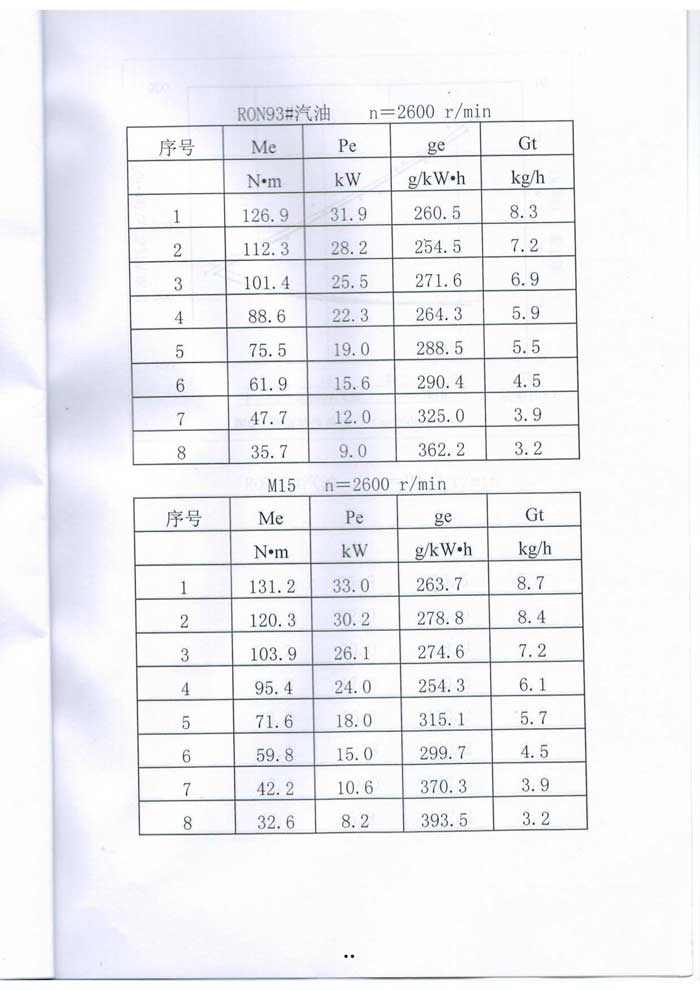 RON93#汽油 n=2600 r/min
序号 Me Pe ge Gt
N•m kW g/kW•h kg/h
1 126.9 31.9 260.5 8.3
2 112.3 28.2 254.5 7.2
3 101.4 25.5 271.6 6.9
4 88.6 22.3 264.3 5.9
5 75.5 19.0 288.5 5.5
6 61.9 15.6 290.4 4.5
7 47.7 12.0 325.0 3.9
8 35.7 9.0 362.2 3.2
M15 n=2600 r/min
序号 Me Pe ge Gt
N•m kW g/kW•h kg/h
1 131.2 33.0 263.7 8.7
2 120.3 30.2 278.8 8.4
3 103.9 26.1 274.6 7.2
4 95.4 24.0 254.3 6.1
5 71.6 18.0 315.1 5.7
6 59.8 15.0 299.7 4.5
7 42.2 10.6 370.3 3.9
8 32.6 8.2 393.5 3.2